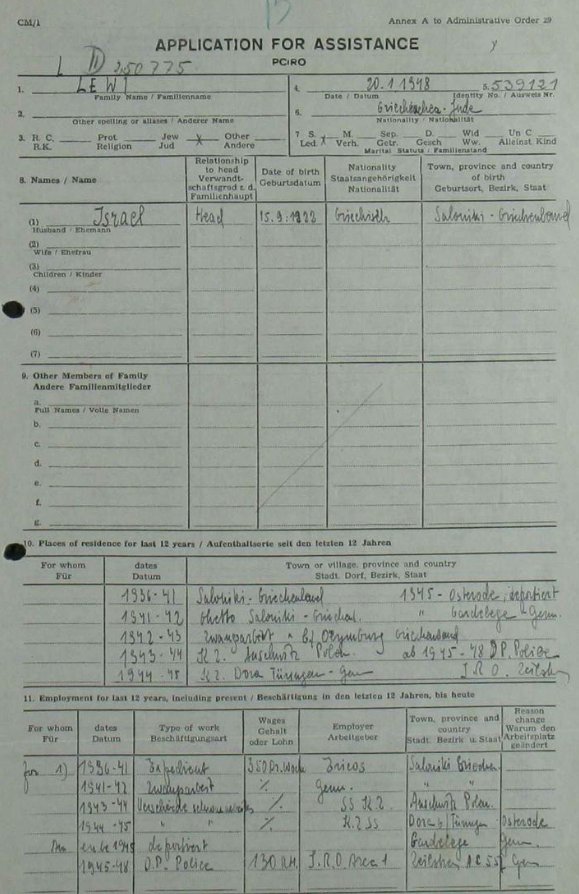 15
CM/1
Annex A to Administrative Order 29
APPLICATION FOR ASSISTANCE
PCIRO
L II 250775
1. LEWI
Family Name / Familienname
4. 20.1.1948
Date / Datum
5. 539121
Identity No. / Ausweis Nr.
2.
Other spelling or aliases / Anderer Name
6. Griechischer-Jude
Nationality / Nationalität
3. R. C. Prot. Jew X Other
R.K. Religion Jud Andere
7 S. X M. Sep. D. Wid Un C
Led. Verh. Getr. Gesch Ww. Alleinst Kind
Marital Status / Familienstand
8. Names / Name
Relationship to head Verwandt-schaftsgrad z. d. Familienhaupt
Date of birth Geburtsdatum
Nationality Staatsangehörigkeit Nationalität
Town, province and country of birth Geburtsort, Bezirk, Staat
(1) Israel Head 15.9.1922 Griechisch Saloniki - Griechenland
Husband / Ehemann
(2)
Wife / Ehefrau
(3)
Children / Kinder
(4)
(5)
(6)
(7)
9. Other Members of Family
Andere Familienmitglieder
a.
Full Names / Volle Namen
b.
c.
d.
e.
f.
g.
10. Places of residence for last 12 years / Aufenthaltsorte seit den letzten 12 Jahren
For whom Für
dates Datum
Town or village, province and country Stadt, Dorf, Bezirk, Staat
1936-41 Saloniki - Griechenland 1945 - Osterode, deportiert
1941-42 Ghetto Saloniki - " Gardelege Germ.
1942-43 Zwangsarbeit Griechenland
1943-44 K Z. Auschwitz Polen ab 1945-48 D.P. Police
1944-45 K Z. Dora Türingen - Germ I.R.O. Zeilsheim
11. Employment for last 12 years, including present / Beschäftigung in den letzten 12 Jahren, bis heute
For whom Für
dates Datum
Type of work Beschäftigungsart
Wages Gehalt oder Lohn
Employer Arbeitgeber
Town, province and country Stadt, Bezirk u. Staat
Reason change Warum den Arbeitsplatz geändert
for 1) 1936-41 Expedient 350 Dr. Woch Saloniki Griechen.
1941-42 Zwangsarbeit % Germ. " "
1943-44 Verschiedene % SS K Z. Auschwitz Polen.
1944-45 " " % K.Z SS Dora b/ Türingen Osterode
1945 deportiert Gardelege Germ.
1945-48 D.P. Police 130 R.M. I.R.O Area 1 Zeilsheim Germ